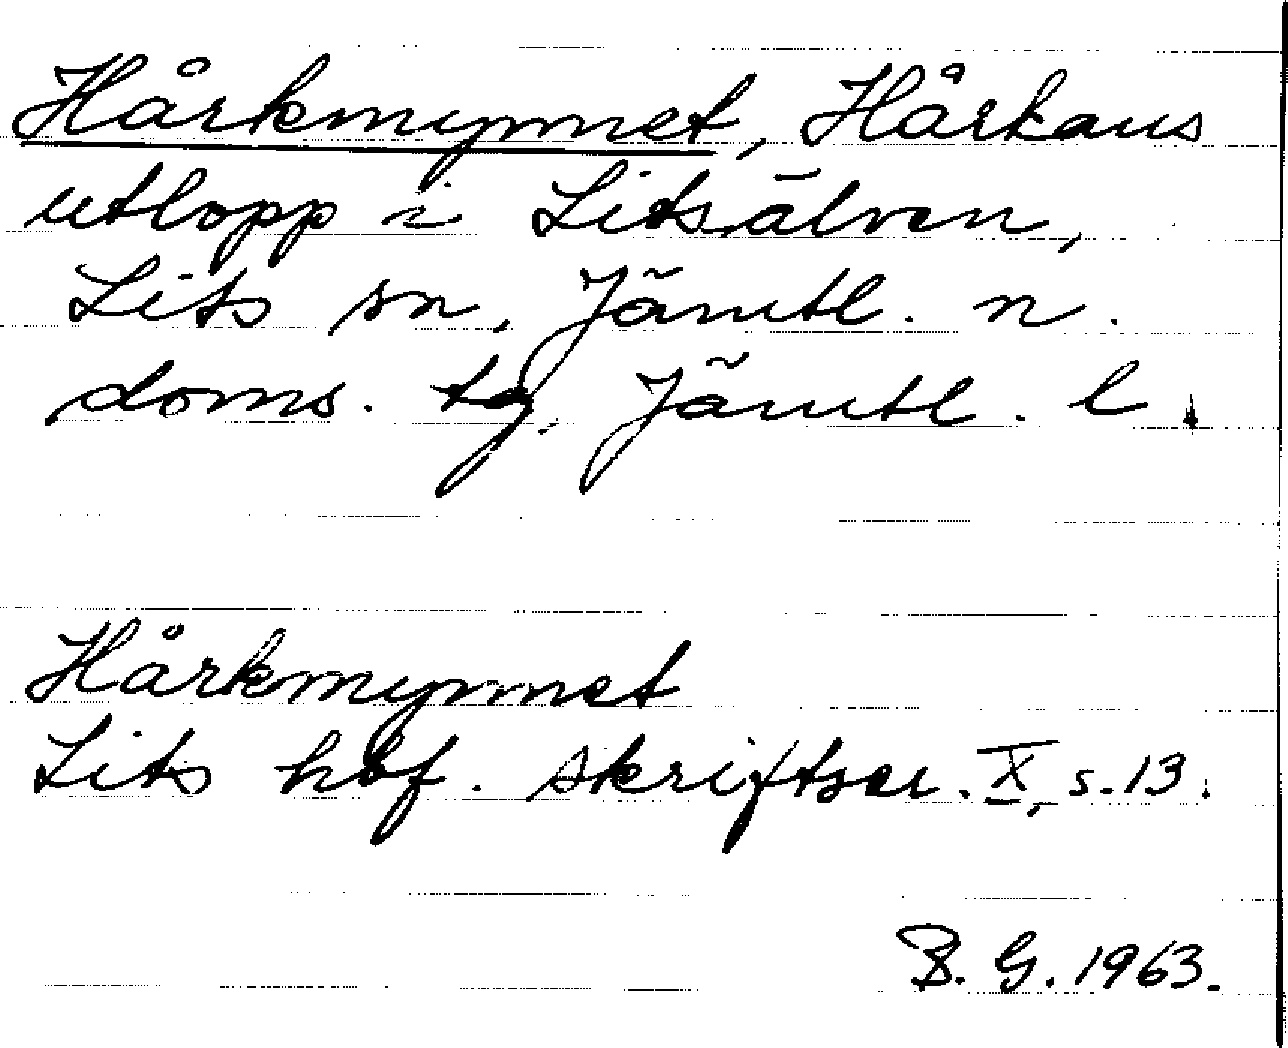 Hårkmynnet, Hårkans
utlopp i Litsälven,
Lits sn, Jämtl. n.
doms. tg, Jämtl. l.
Hårkmynnet
Lits hbf. skriftser. X, s. 13.
B. G. 1963.